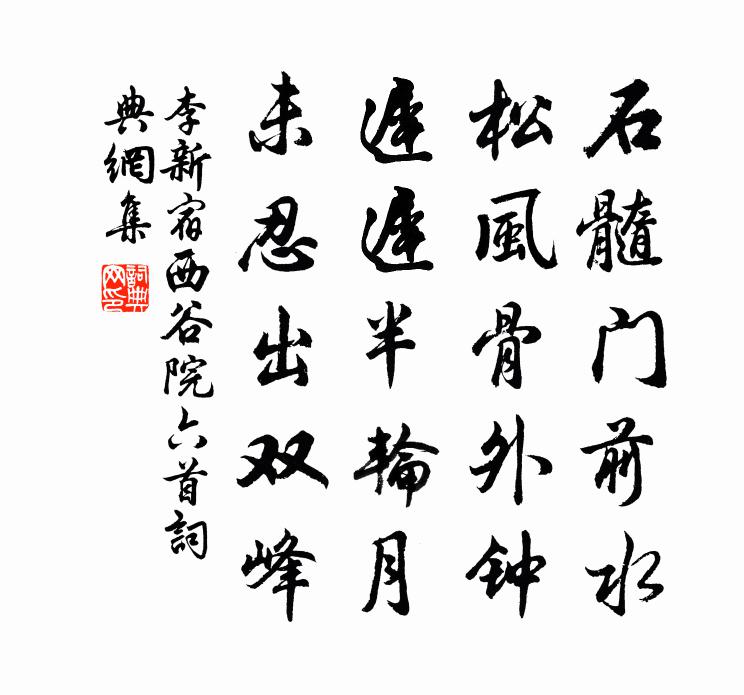 石髓门前水
松風骨外钟
遲遲半輪月
未忍出双峰
李新宿西谷院六首詞
典網集
詞典网印